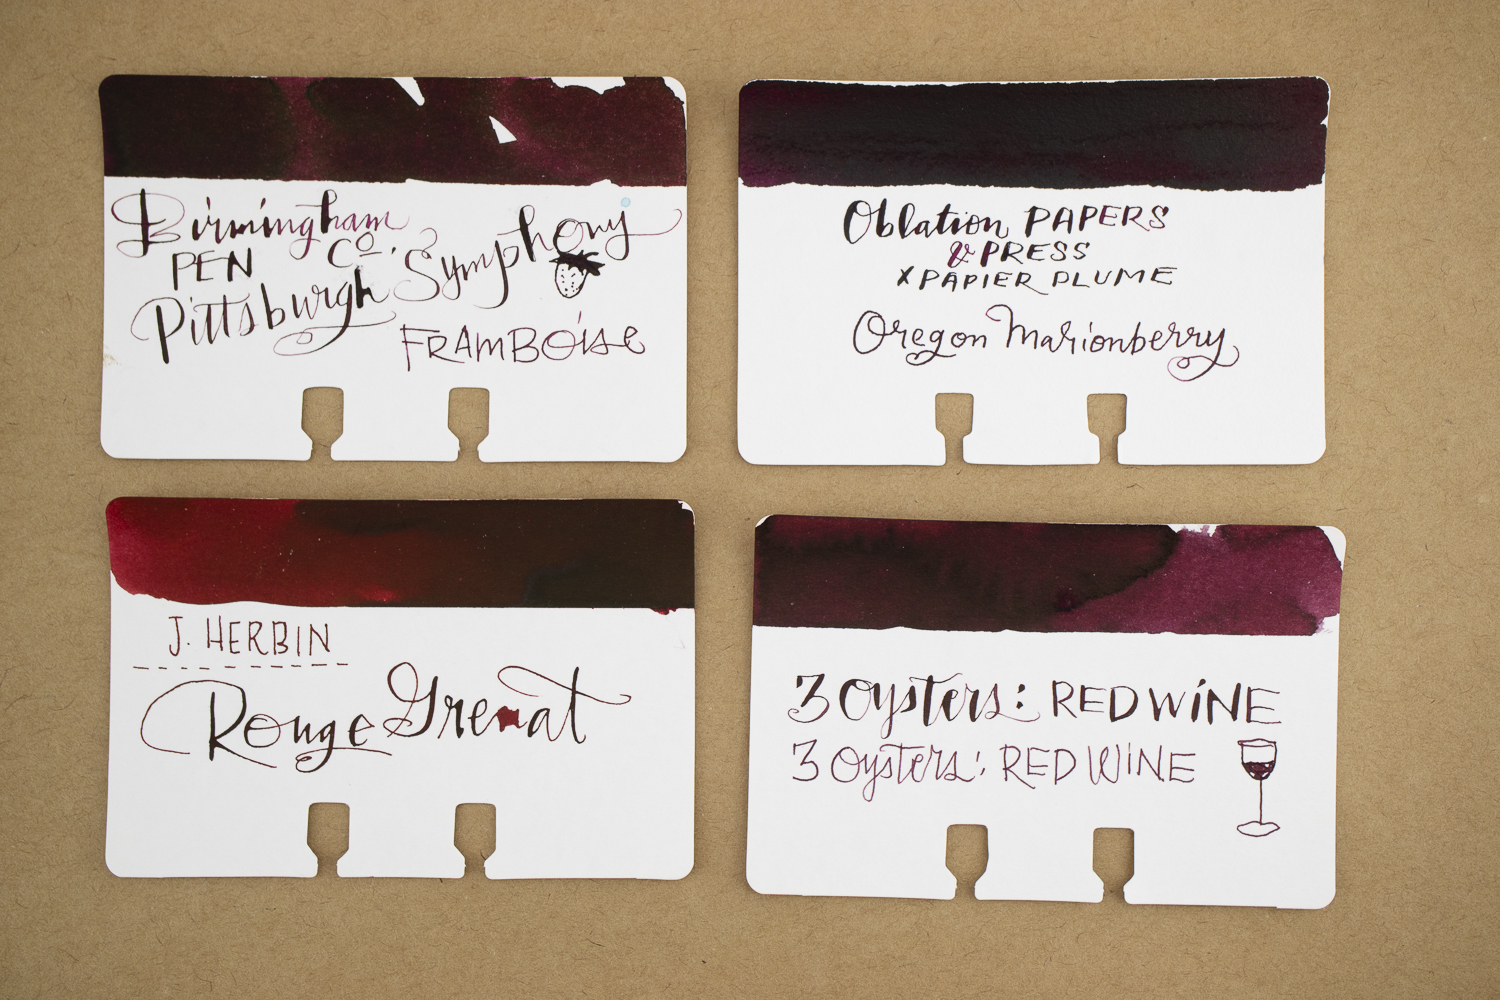 Birmingham
PEN Co.
Pittsburgh Symphony
FRAMBOISE
Oblation PAPERS
& PRESS
x PAPIER PLUME
Oregon Marionberry
J. HERBIN
Rouge Grenat
3 Oysters: RED WINE
3 Oysters: RED WINE